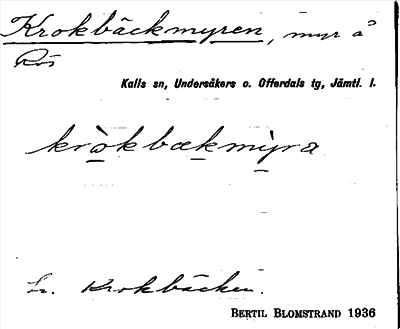 Krokbäckmyren, myr å
Kalls sn, Undersåkers o. Offerdals tg, Jämtl. l.
kròkbækmỳra
Krokbäcken.
BERTIL BLOMSTRAND 1936